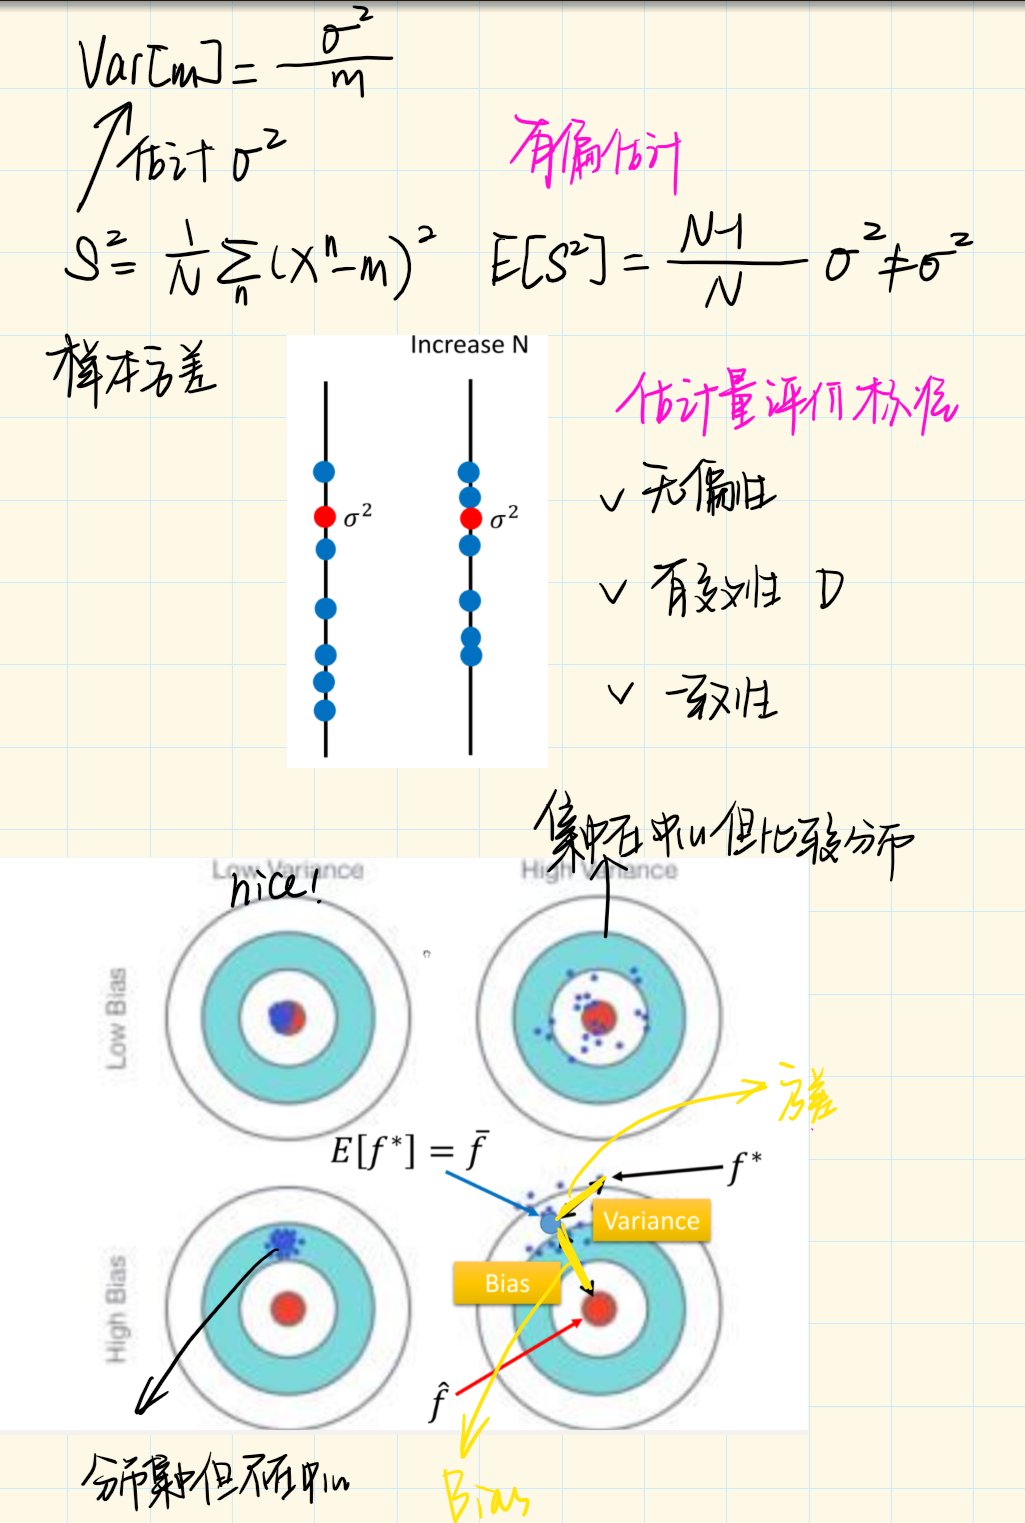 Var[m] = σ²/m
估计 σ²
有偏估计
S² = 1/N Σn (xⁿ-m)² E[S²] = N-1/N σ² ≠ σ²
样本方差
Increase N
σ²
σ²
估计量评价标准
✓ 无偏性
✓ 有效性 D
✓ 一致性
集中在中心但比较分布
Low Variance
nice!
High Variance
Low Bias
方差
E[f*] = f̄
f*
Variance
Bias
High Bias
f̂
分布集中但不在中心
Bias